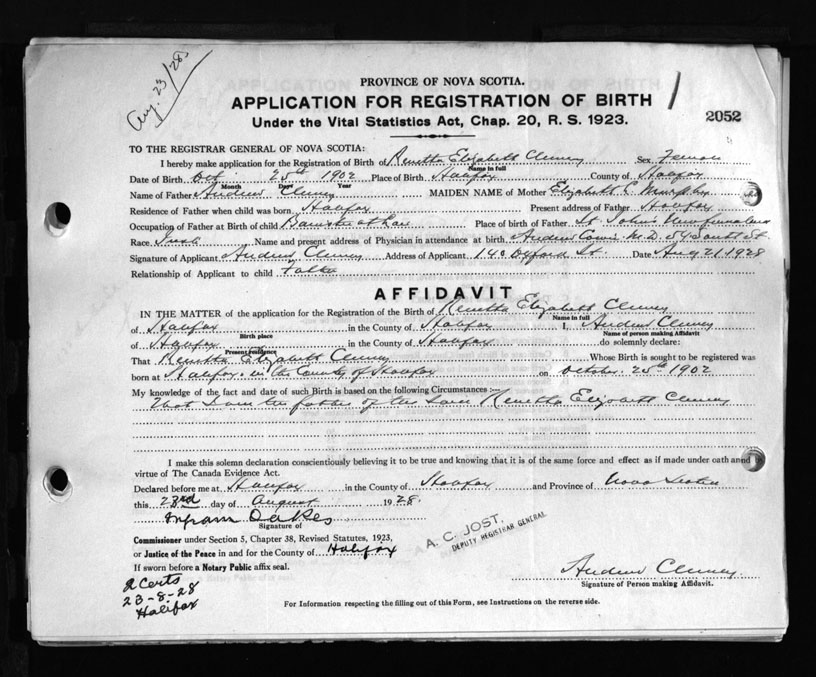 Aug. 23/28
PROVINCE OF NOVA SCOTIA.
APPLICATION FOR REGISTRATION OF BIRTH
2052
Under the Vital Statistics Act, Chap. 20, R. S. 1923.
TO THE REGISTRAR GENERAL OF NOVA SCOTIA:
I hereby make application for the Registration of Birth of Elizabeth Sex Female
Name in full
Date of Birth Oct 25th 1902 Place of Birth Halifax County of Halifax
Month Days Year
Name of Father Andrew MAIDEN NAME of Mother Elizabeth Murphy
Residence of Father when child was born Halifax Present address of Father Halifax
Occupation of Father at Birth of child Place of birth of Father St. John's Newfoundland
Race Name and present address of Physician in attendance at birth Andrew M.D. St.
Signature of Applicant Andrew Address of Applicant Oxford St. Date Aug 21 1928
Relationship of Applicant to child Father
AFFIDAVIT
IN THE MATTER of the application for the Registration of the Birth of Elizabeth
Name in full
of Halifax in the County of Halifax I, Andrew
Birth place Name of person making Affidavit
of Halifax in the County of Halifax do solemnly declare:
Present residence
That Elizabeth Whose Birth is sought to be registered was
born at Halifax, in the County of Halifax on October 25th 1902
My knowledge of the fact and date of such Birth is based on the following Circumstances :—
That I am the father of the said Elizabeth
I make this solemn declaration conscientiously believing it to be true and knowing that it is of the same force and effect as if made under oath and
virtue of The Canada Evidence Act.
Declared before me at Halifax in the County of Halifax and Province of Nova Scotia
this 23rd day of August 1928.
Oakes
Signature of
A. C. JOST.
DEPUTY REGISTRAR GENERAL
Commissioner under Section 5, Chapter 38, Revised Statutes, 1923,
or Justice of the Peace in and for the County of Halifax
If sworn before a Notary Public affix seal.
Andrew
Signature of Person making Affidavit.
2 Certs
23-8-28
Halifax
For Information respecting the filling out of this Form, see Instructions on the reverse side.